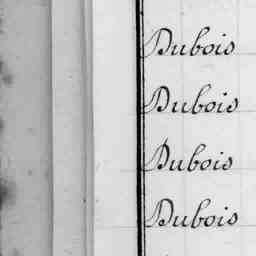 Dubois
Dubois
Dubois
Dubois